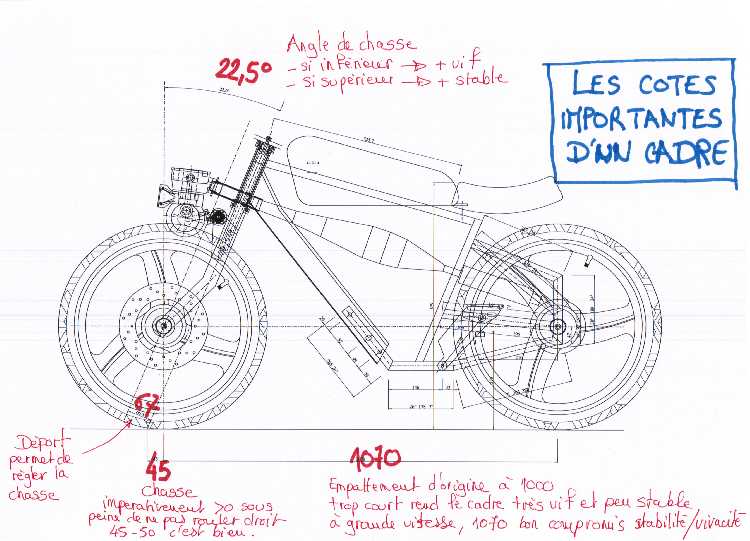 Angle de chasse
- si inférieur → + vif
- si supérieur → + stable
22,5°
LES COTES
IMPORTANTES
D'UN CADRE
67
Déport
permet de
régler la
chasse
45
chasse
impérativement >0 sous
peine de ne pas rouler droit
45-50 c'est bien.
1070
Empattement d'origine à 1000
trop court rend le cadre très vif et peu stable
à grande vitesse, 1070 bon compromis stabilité/vivacité